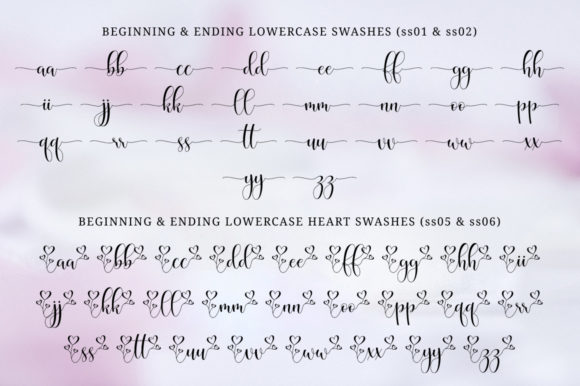 BEGINNING & ENDING LOWERCASE SWASHES (ss01 & ss02)
aa bb cc dd ee ff gg hh
ii jj kk ll mm nn oo pp
qq rr ss tt uu vv ww xx
yy zz
BEGINNING & ENDING LOWERCASE HEART SWASHES (ss05 & ss06)
aa bb cc dd ee ff gg hh ii
jj kk ll mm nn oo pp qq rr
ss tt uu vv ww xx yy zz